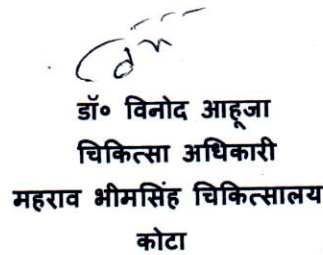 डॉ० विनोद आहूजा
चिकित्सा अधिकारी
महराव भीमसिंह चिकित्सालय
कोटा